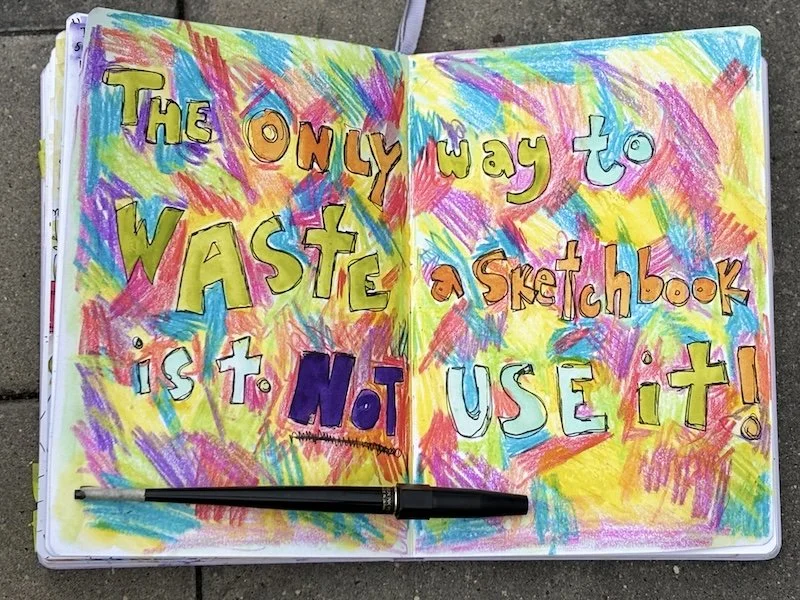 THE ONLY way to
WASTE a Sketchbook
is to NOT USE it!